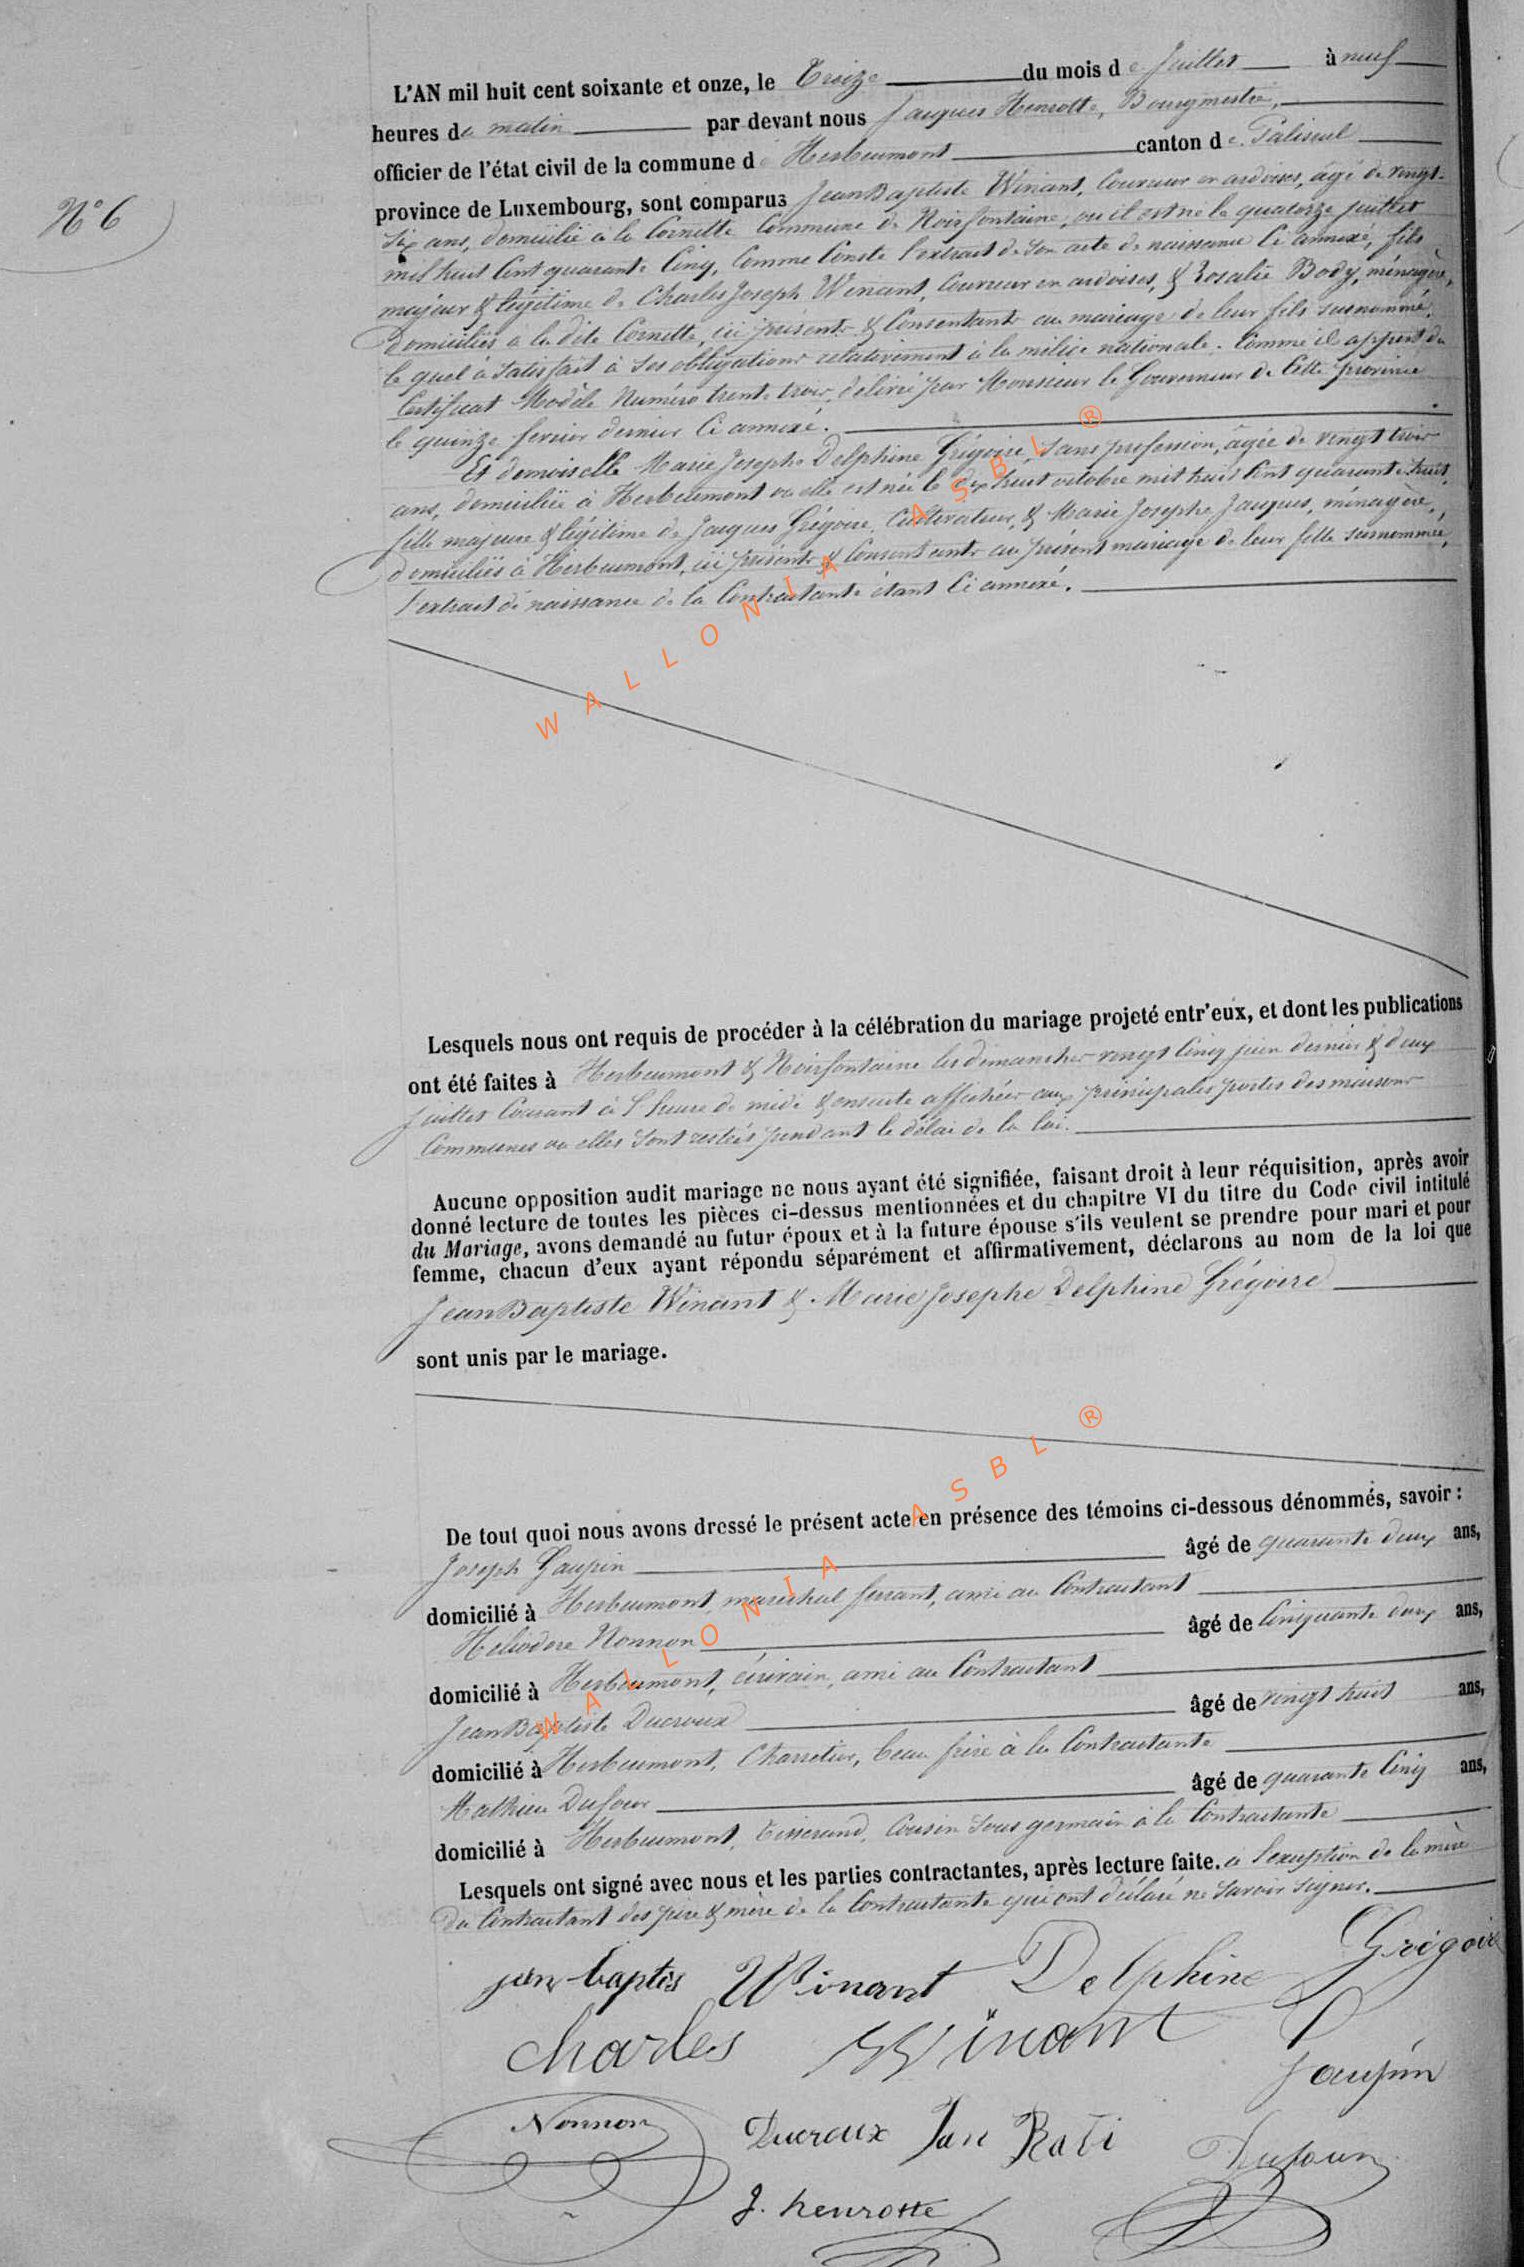 N° 6
L'AN mil huit cent soixante et onze, le Treize du mois de Juillet à neuf
heures du matin par devant nous Jacques Henrotte, Bourgmestre,
officier de l'état civil de la commune d'Herbeumont canton de Paliseul
province de Luxembourg, sont comparus Jean Baptiste Winant, Couvreur en ardoises, âgé de vingt-
six ans, domicilié à la Cornette Commune de Noirfontaine, où il est né le quatorze juillet
mil huit Cent quarante Cinq, Comme Conste l'extrait de son acte de naissance Ci annexé, fils
majeur & légitime de Charles Joseph Winant, Couvreur en ardoises, & Rosalie Body, ménagère,
domiciliés à la dite Cornette, ici présents & Consentants au mariage de leur fils susnommé,
le quel à satisfait à ses obligations relativement à la milice nationale. Comme il appert du
Certificat Modèle Numéro trente trois, délivré par Monsieur le Gouverneur de Cette province
le quinze fevrier dernier Ci annexé.
Et demoiselle Marie Josephe Delphine Grégoire, sans profession, âgée de vingt trois
ans, domiciliée à Herbeumont où elle est née le dix huit octobre mil huit Cent quarante huit,
fille majeure & légitime de Jacques Grégoire, Cultivateur, & Marie Josephe Jacques, ménagère,
domiciliés à Herbeumont, ici présents & Consentants au présent mariage de leur fille susnommée,
l'extrait de naissance de la Contractante étant Ci annexé.
WALLONIA ASBL ®
Lesquels nous ont requis de procéder à la célébration du mariage projeté entr'eux, et dont les publications
ont été faites à Herbeumont & Noirfontaine les dimanches vingt Cinq juin dernier & deux
juillet Courant à l'heure de midi & ensuite affichées aux principales portes des maisons
Communes où elles sont restées pendant le délai de la loi.
Aucune opposition audit mariage ne nous ayant été signifiée, faisant droit à leur réquisition, après avoir
donné lecture de toutes les pièces ci-dessus mentionnées et du chapitre VI du titre du Code civil intitulé
du Mariage, avons demandé au futur époux et à la future épouse s'ils veulent se prendre pour mari et pour
femme, chacun d'eux ayant répondu séparément et affirmativement, déclarons au nom de la loi que
Jean Baptiste Winant & Marie Josephe Delphine Grégoire
sont unis par le mariage.
WALLONIA ASBL ®
De tout quoi nous avons dressé le présent acte en présence des témoins ci-dessous dénommés, savoir :
Joseph Gaupin âgé de quarante deux ans,
domicilié à Herbeumont, maréchal ferrant, ami au Contractant
Héliodore Nonnon âgé de Cinquante deux ans,
domicilié à Herbeumont, écrivain, ami au Contractant
Jean Baptiste Ducroux âgé de vingt huit ans,
domicilié à Herbeumont, Charretier, beau frère à la Contractante
Mathieu Dufour âgé de quarante Cinq ans,
domicilié à Herbeumont, Tisserand, Cousin sous germain à la Contractante
Lesquels ont signé avec nous et les parties contractantes, après lecture faite. à l'exception de la mère
du Contractant des père & mère de la Contractante qui ont déclaré ne savoir signer.
jan baptis Winant Delphine Grégoire
Charles Winant
J Gaupin
Nonnon Ducroux Jan Bati Dufour
J. henrotte